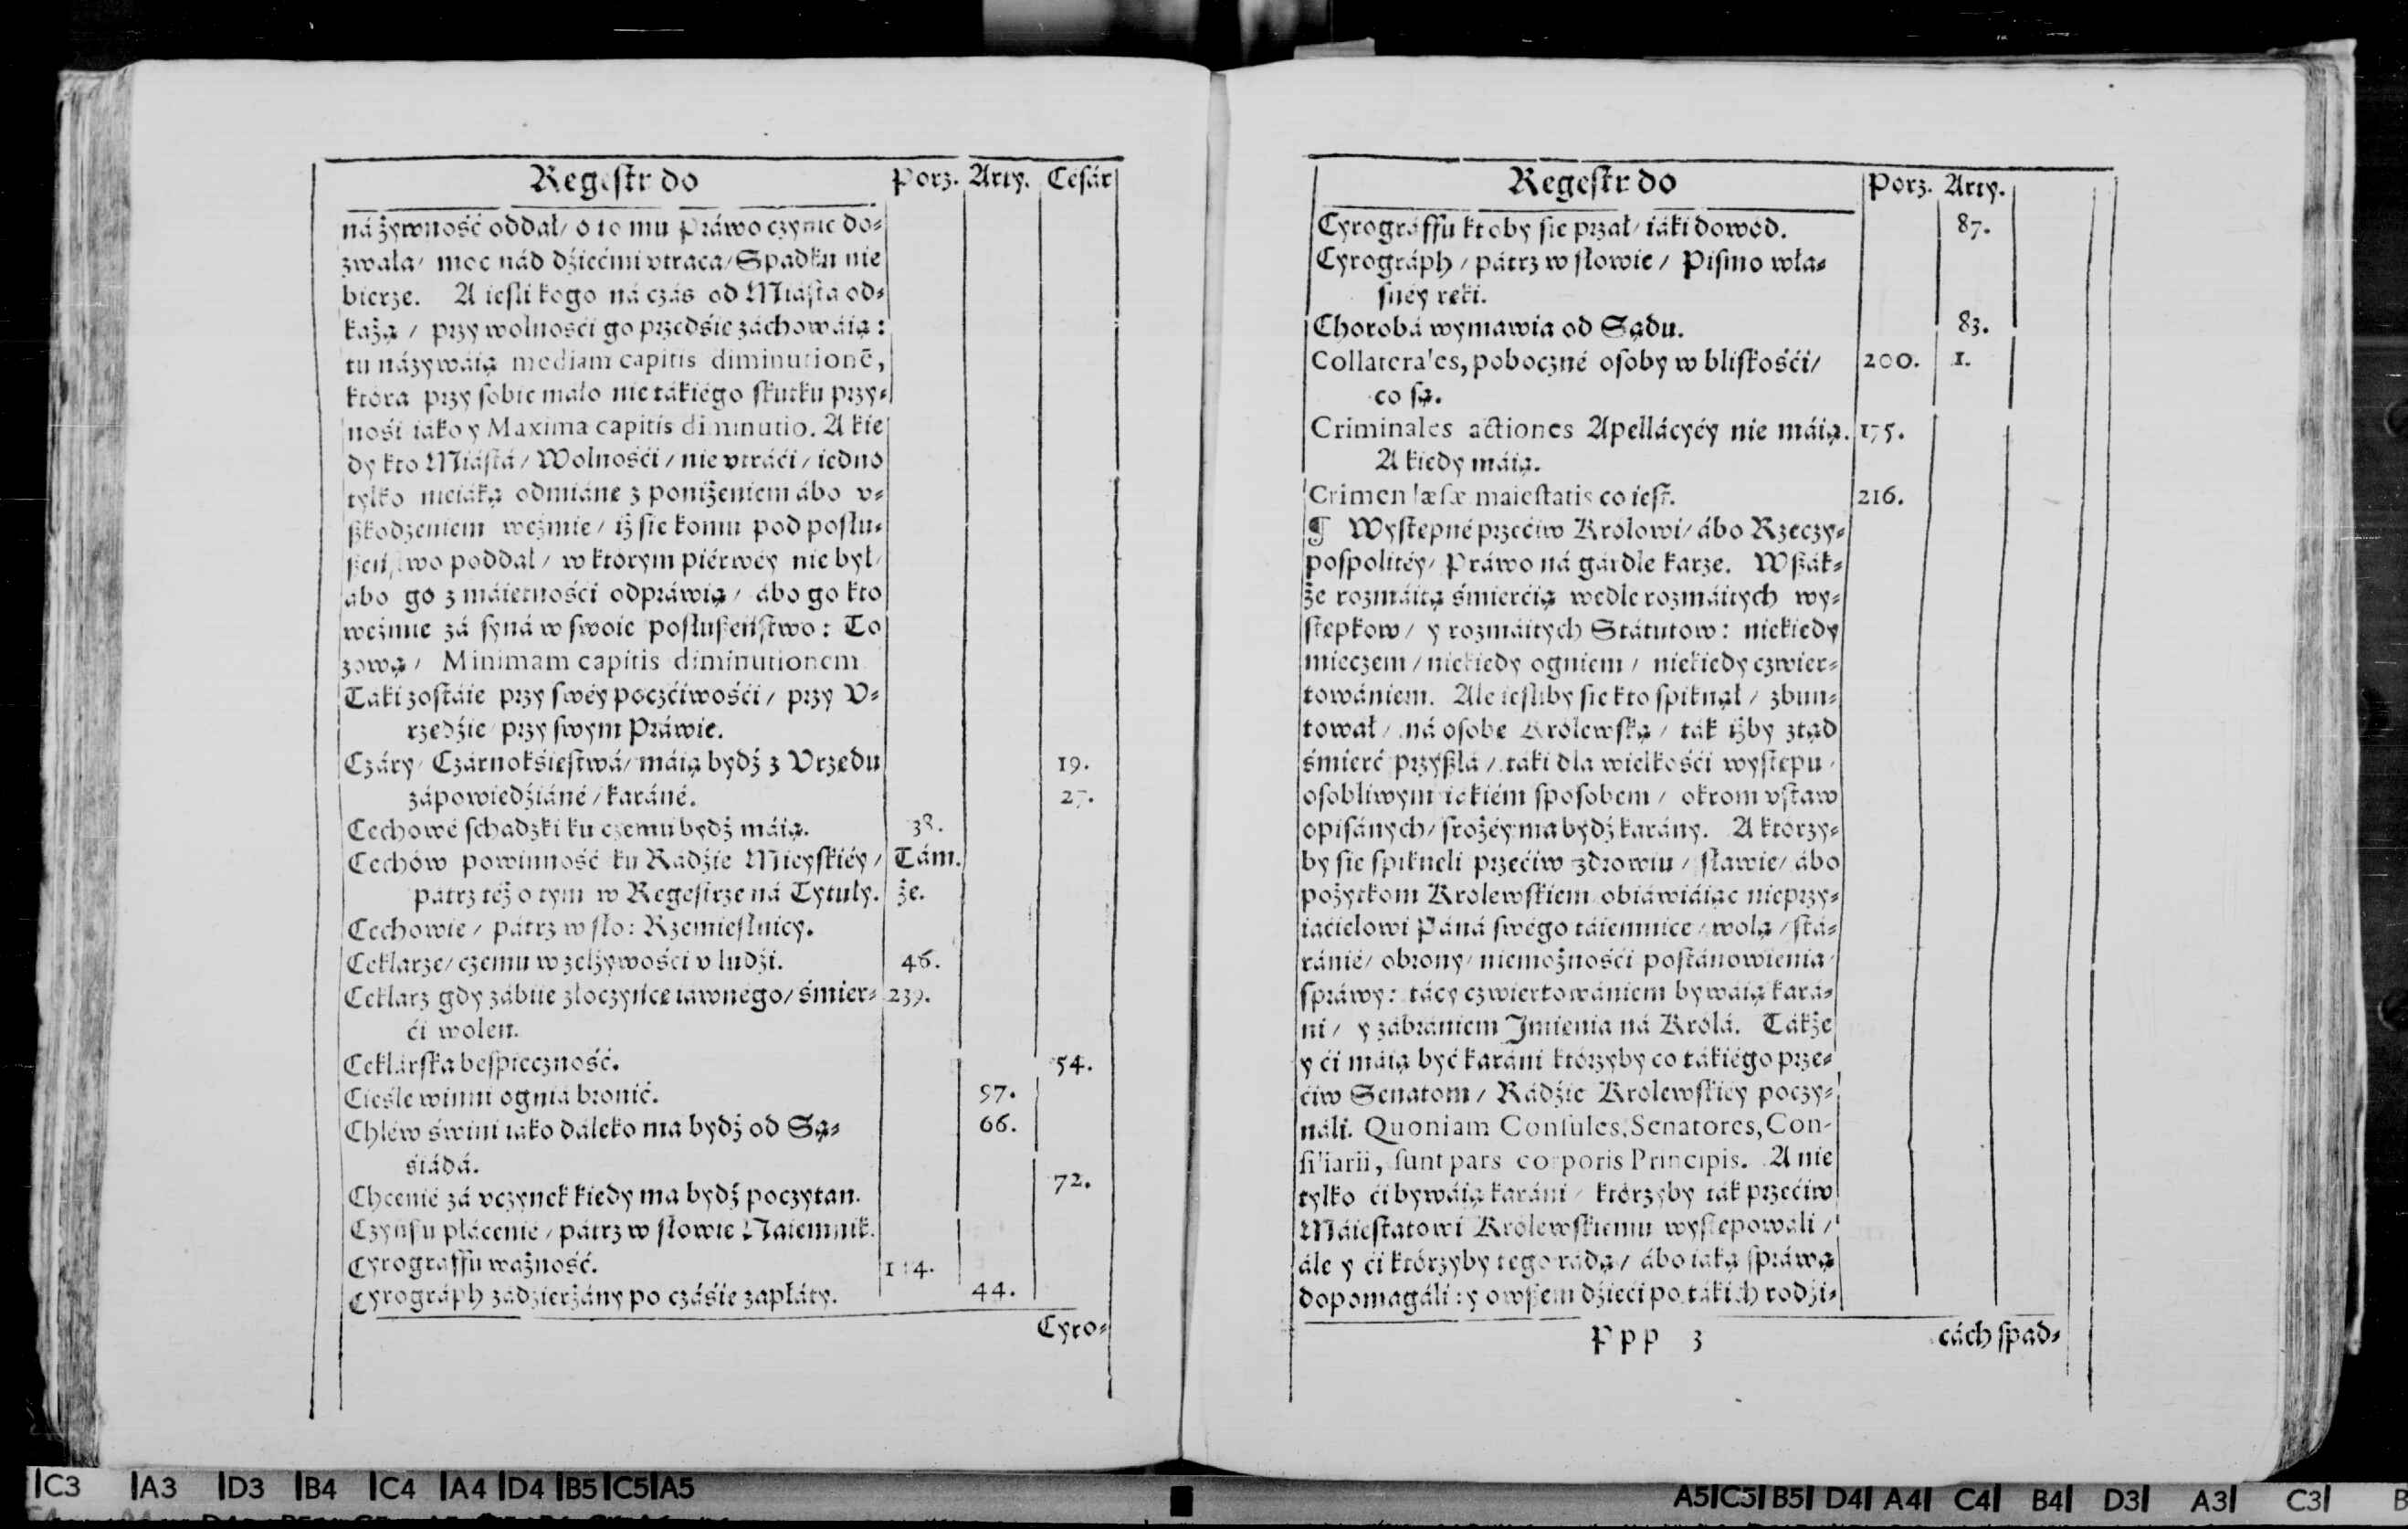 Regestr do Porz. Arty. Cesár
ná żywność oddał/ o to mu Práwo czynić do-
zwala/ moc nád dźiećmi vtraca/ Spadku nie
bierze. A iesli kogo ná czás od Miástá od-
każą / przy wolnośći go przedśie záchowáią:
tu názywáią mediam capitis diminutionẽ,
która przy sobie máło nie tákiégo skutku przy-
nośi iáko y Maxima capitis diminutio. A kie
dy kto Miástá/ Wolnośći/ nie vtráći/ iedno
tylko nieiáką odmiáne z poniżeniem ábo v-
szkodzeniem weźmie/ iż sie komu pod posłu-
szeństwo poddał/ w którym piérwéy nie był/
abo go z máietnośći odpráwią/ ábo go kto
weźmie zá syná w swoie posłuszeństwo: To
zową/ Minimam capitis diminutionem
Táki zostáie przy swéy poczćiwośći/ przy V-
rzedźie/ przy swym Práwie.
Czáry/ Czárnokśiestwá/ máią bydź z Vrzedu 19.
zápowiedźiáné/ karáné. 27.
Cechowé schadzki ku czemu bydź máią. 38.
Cechów powinność ku Rádźie Mieyskiéy/ Tám.
pátrz téż o tym w Regestrze ná Tytuły. że.
Cechowie/ pátrz w sło: Rzemieslnicy.
Ceklarze/ czemu w zelżywości v ludźi. 46.
Ceklarz gdy zábiie złoczyńce iáwnégo/ śmier- 239.
ći wolen.
Ceklárska bespieczność. 54.
Cieśle winni ogniá bronić. 97.
Chléw świni iáko dáleko ma bydź od Są- 66.
śiádá.
Chcenié zá vczynek kiedy ma bydź poczytan. 72.
Czynsu płácenié/ pátrz w słowie Náiemnik.
Cyrograffu ważność. 114.
Cyrográph zádzierżány po czáśie zapłáty. 44.
Cyro-
Regestr do Porz. Arty.
Cyrográffu ktoby sie przał/ iáki dowód. 87.
Cyrográph/ pátrz w słowie/ Pismo wła-
snéy reki.
Chorobá wymawia od Sądu. 83.
Collaterales, poboczné osoby w bliskośći/ 200. 1.
co są.
Criminales actiones Apellácyéy nie máią. 175.
A kiedy máią.
Crimen læsæ maiestatis co iest. 216.
¶ Wystepné przećiw Królowi/ ábo Rzeczy-
pospolitéy/ Práwo ná gárdle karze. Wszák-
że rozmáitą śmierćią wedle rozmáitych wy-
stepkow/ y rozmáitych Státutow: niekiedy
mieczem/ niekiedy ogniem/ niekiedy czwier-
towániem. Ale iesliby sie kto spiknął/ zbun-
tował/ ná osobe Królewską/ ták iżby ztąd
śmierć przyszłá/ táki dla wielkośći wystepu/
osobliwym iákiém sposobem/ okrom vstaw
opisánych/ srożéy ma bydź karány. A którzy-
by sie spikneli przećiw zdrowiu/ sławie/ ábo
pożytkom Krolewskiem obiáwiáiąc nieprzy-
iaćielowi Páná swégo táiemnice/ wolą/ stá-
ránié/ obrony/ niemożnośći postánowienia/
spráwy: tácy czwiertowániem bywáią kará-
ni/ y zábrániem Jmienia ná Królá. Tákże
y ći máią być karáni którzyby co tákiégo prze-
ćiw Senatom/ Rádźie Królewskiéy poczy-
náli. Quoniam Consules, Senatores, Con-
siliarii, sunt pars corporis Principis. A nie
tylko ći bywáią karáni/ którzyby ták przećiw
Máiestatowi Królewskiemu wystepowáli/
ále y ći którzyby tego rádą/ ábo iáką spráwą
dopomagáli: y owszem dźieći po tákich rodźi-
Ppp 3 cách spad-
C3 A3 D3 B4 C4 A4 D4 B5 C5 A5
A5 C5 B5 D4 A4 C4 B4 D3 A3 C3